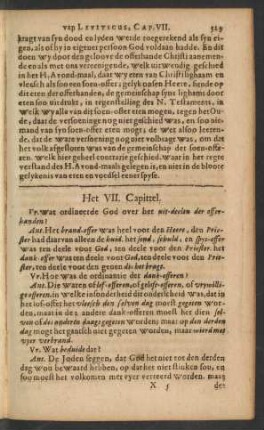 vyp LEVITICUS, CAP. VII. 329
kragt van syn dood en lyden werde toegerekend als syn ei-
gen, als of hy in eigener persoon God voldaan hadde. En dit
doen wy door den geloove de offerhande Christi aanemen-
de en als met ons vereenigende. Welk uitwendig geschied
in het H. Avondmaal, daar wy eten van Christi lighaam en
vleesch als soo een soen-offer; gelyk onsen Heere, sende op
dit eten der offerhanden, de gemeenschap syns lighams door
eten soo uitdrukt, in tegenstelling des N. Testaments, in
Welk wy alle van dit soen-offer eten mogen, tegen het Ou-
de, daar de versoeninge nog niet geschied was, en soo nie-
mand van syn soen-offer eten mogt; de Wet alsoo leeren-
de, dat de ware versoeninge nog niet volbragt was, om dat
het volk gesloten was van de gemeenschap van dit soen-
offer. Welk hier geheel contrarie geschied. Waar in het regte
verstand des H. Avondmaals gelegen is, en niet in de bloote
gelykenis van eten en voedsel en der spyse.
Het VII. Capittel.
Vr. Wat ordineerde God over het uit-deelen der offer-
handen?
Ant. Het brand-offer was heel voor den Heere, den Prie-
ster had daar van alleen de huid. het sond, schuld, en spys-offer
was ten deele voor God, ten deele voor den Priester. het
dank-offer was ten deele voor God, ten deele voor den Prie-
ster, ten deele voor den geenen die het bragt.
Vr. Hoe was de ordinantie der dank-offeren?
Ant. Die waren of lof-offeren, of gelofte-offeren, of vrywilli-
ge offeren, in welke insonderheid dit onderscheid was, dat in
het lof-offer het vleesch den selven dag moest gegeten wor-
den, maar in de andere dank-offeren moest het dien sel-
ven of des anderen daags gegeten worden; maar op den derden
dag mogt het gantsch niet gegeten worden, maar wierd met
vyer verbrand.
Vr. Wat beduide dat?
Ant. De Joden seggen, dat God het niet tot den derden
dag wou bewaard hebben, op dat het niet stinken sou, en
soo moest het volkomen met vyer verteerd worden. maar
X 5 de